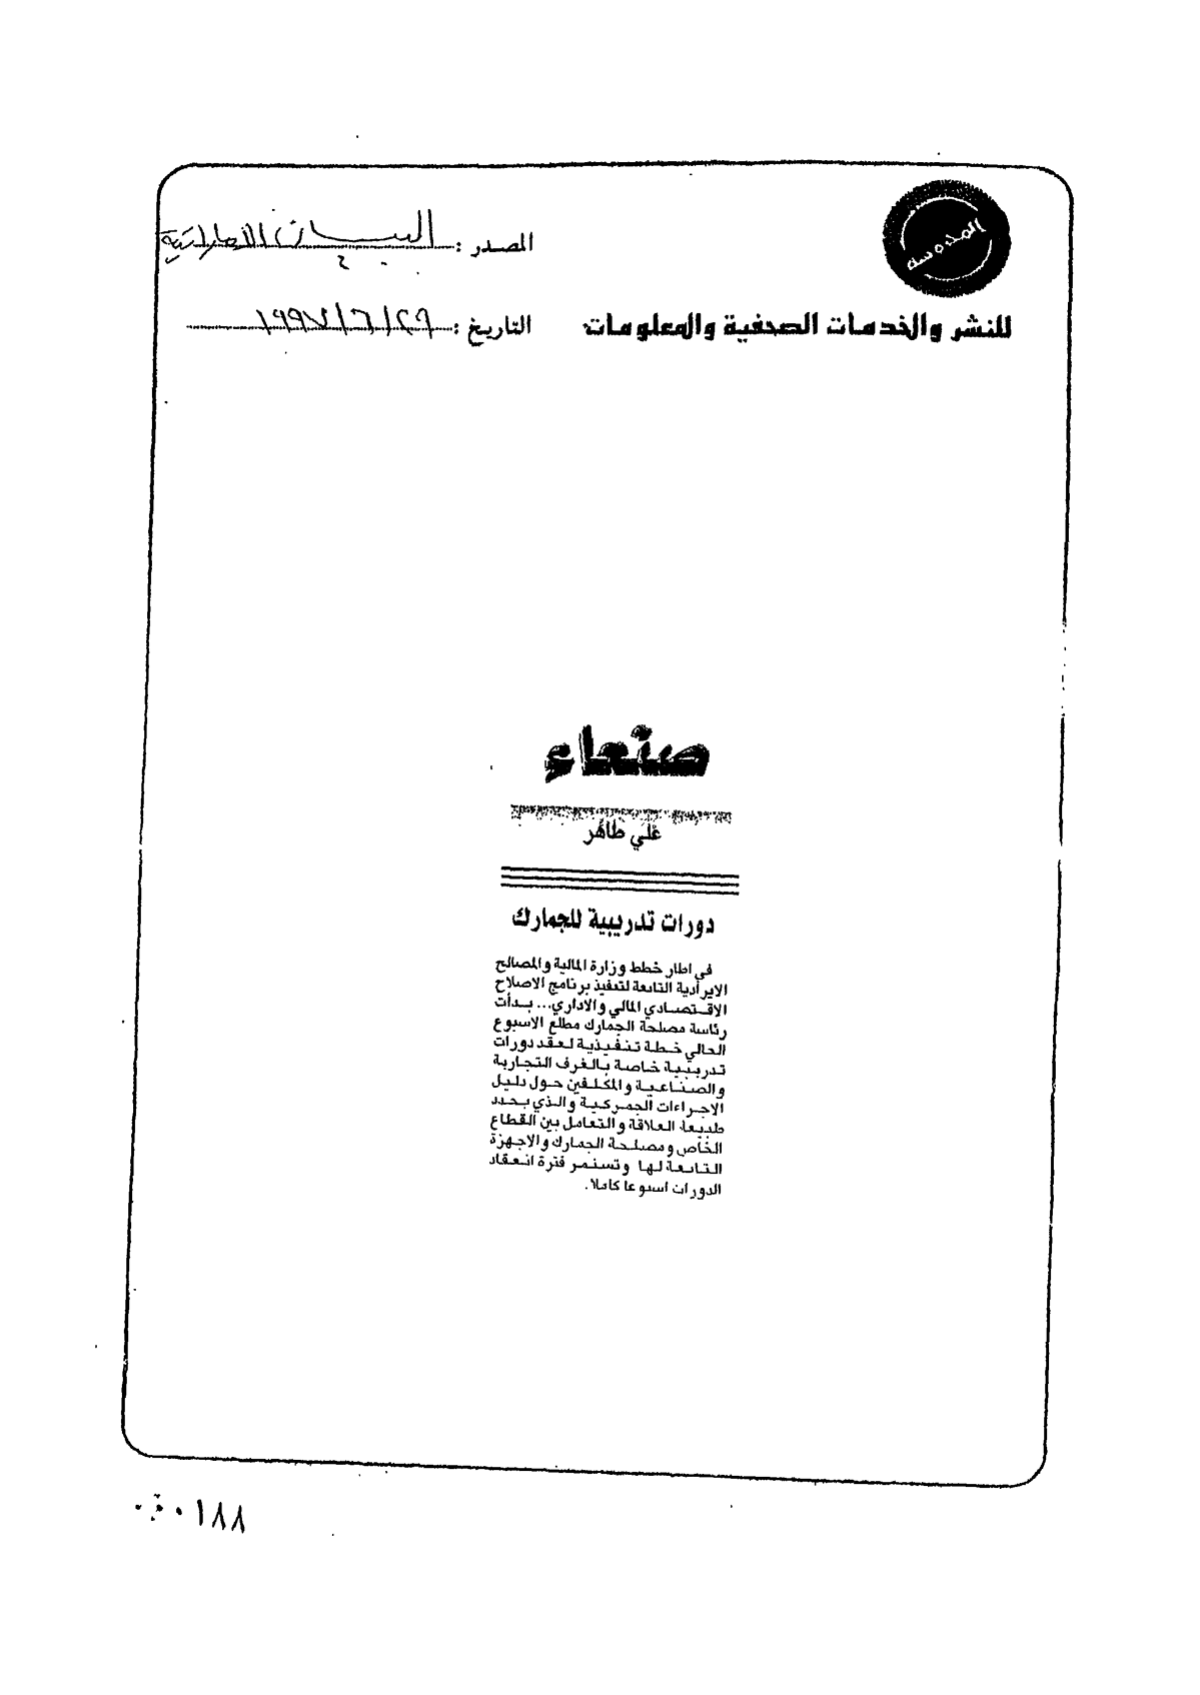 المحروسة
المصدر : البيان الإماراتية
للنشر والخدمات الصحفية والمعلومات
التاريخ : ٢٩ / ٦ / ١٩٩٧
صنعاء
علي طاهر
دورات تدريبية للجمارك
في اطار خطط وزارة المالية والمصالح
الايرادية التابعة لتنفيذ برنامج الاصلاح
الاقتصادي المالي والاداري... بدأت
رئاسة مصلحة الجمارك مطلع الاسبوع
الحالي خطة تنفيذية لعقد دورات
تدريبية خاصة بالغرف التجارية
والصناعية والمكلفين حول دليل
الاجراءات الجمركية والذي يحدد
طبيعة العلاقة والتعامل بين القطاع
الخاص ومصلحة الجمارك والاجهزة
التابعة لها وتستمر فترة انعقاد
الدورات اسبوعا كاملا.
٠١٨٨